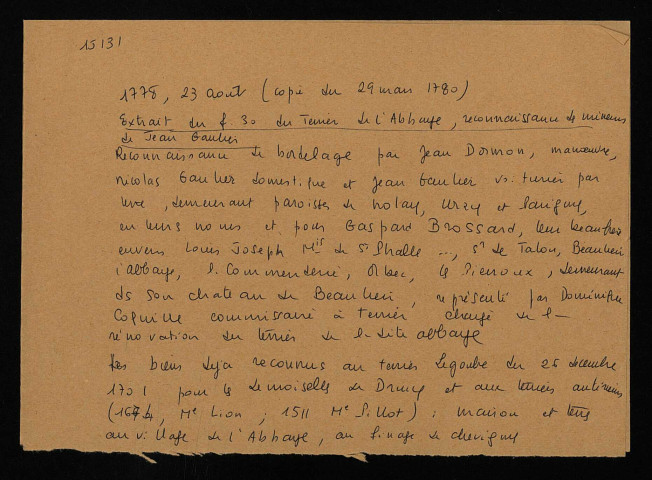 15131
1778, 23 aout (copie du 29 mars 1780)
Extrait du f. 30 du Terrier de l'Abbaye, reconnaissance de mineurs
de Jean Gautier
Reconnaissance de bordelage par Jean Dormon, manœuvre,
Nicolas Gautier domestique et Jean Gautier voiturier par
demeurant paroisses de Nolay, Urzy et Parigny,
en leurs noms et pour Gaspard Brossard, leur beaufrère
envers Louis Joseph Mis de St Phalle ..., Sr de Talon, Beaulieu
l'abbaye, l. Commenderie, Le demeurant
ds son chateau de Beaulieu, représenté par Dominique
Coquille commissaire à terrier chargé de l-
rénovation du terrier de l-dite abbaye
des biens deja reconnus au terrier du 26 decembre
1701 pour les demoiselles de Druy et aux terriers antérieurs
(1674, Me Lion ; 1511 Me Pillot) : maison et terres
au village de l'Abbaye, au finage de chevigny